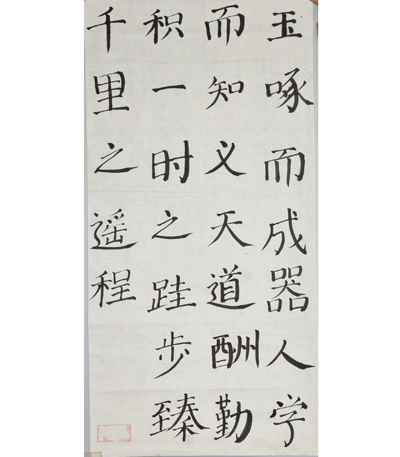 玉啄而成器人学
而知义天道酬勤
积一时之跬步臻
千里之遥程